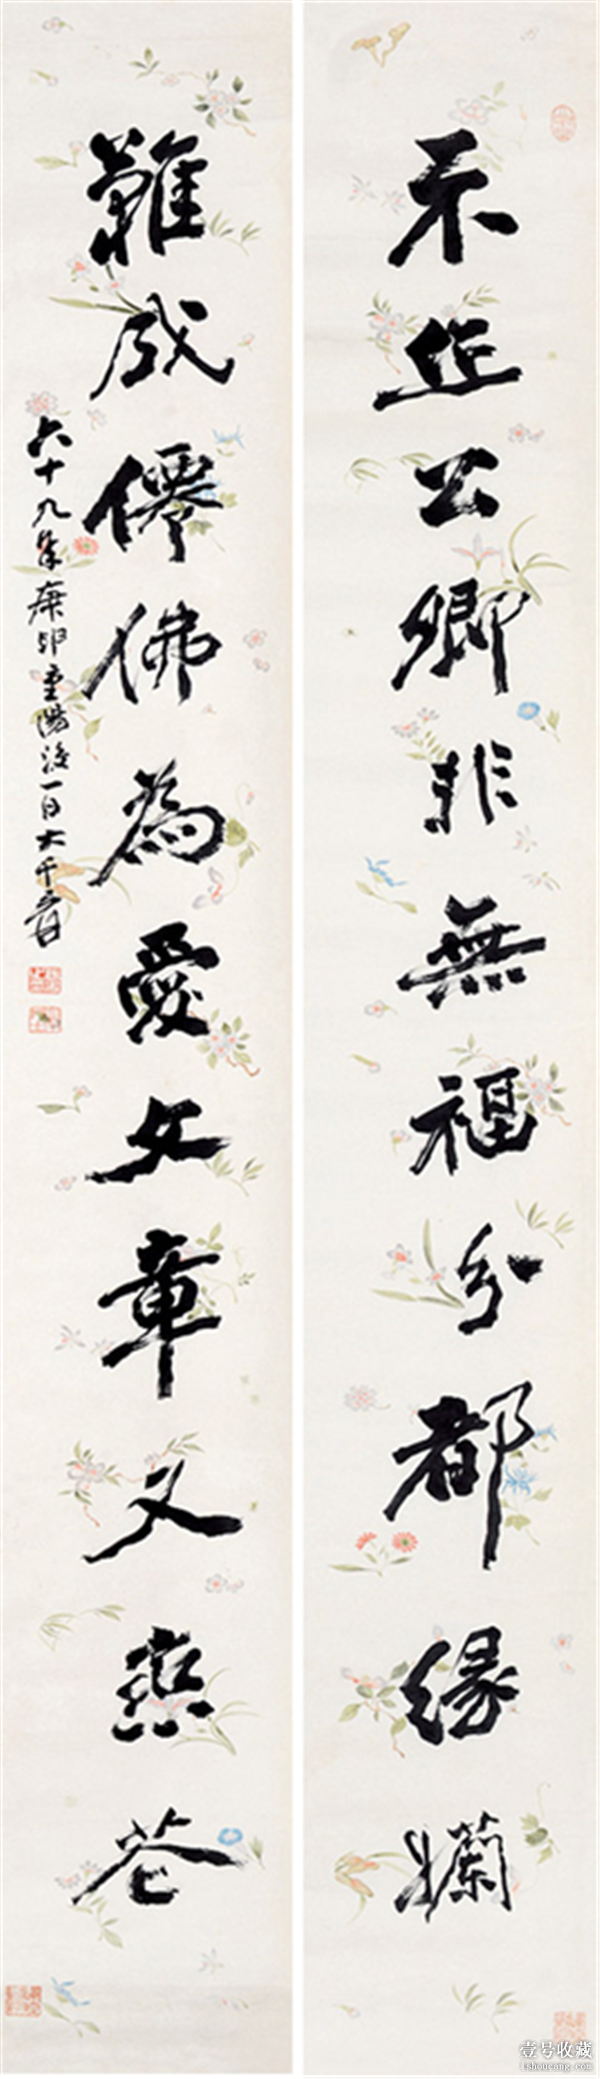 不作公卿非無福分都緣孏
難成僊佛為愛文章又恋花
六十九年庚申重陽後一日大千爰
壹号收藏
1shoucang.com